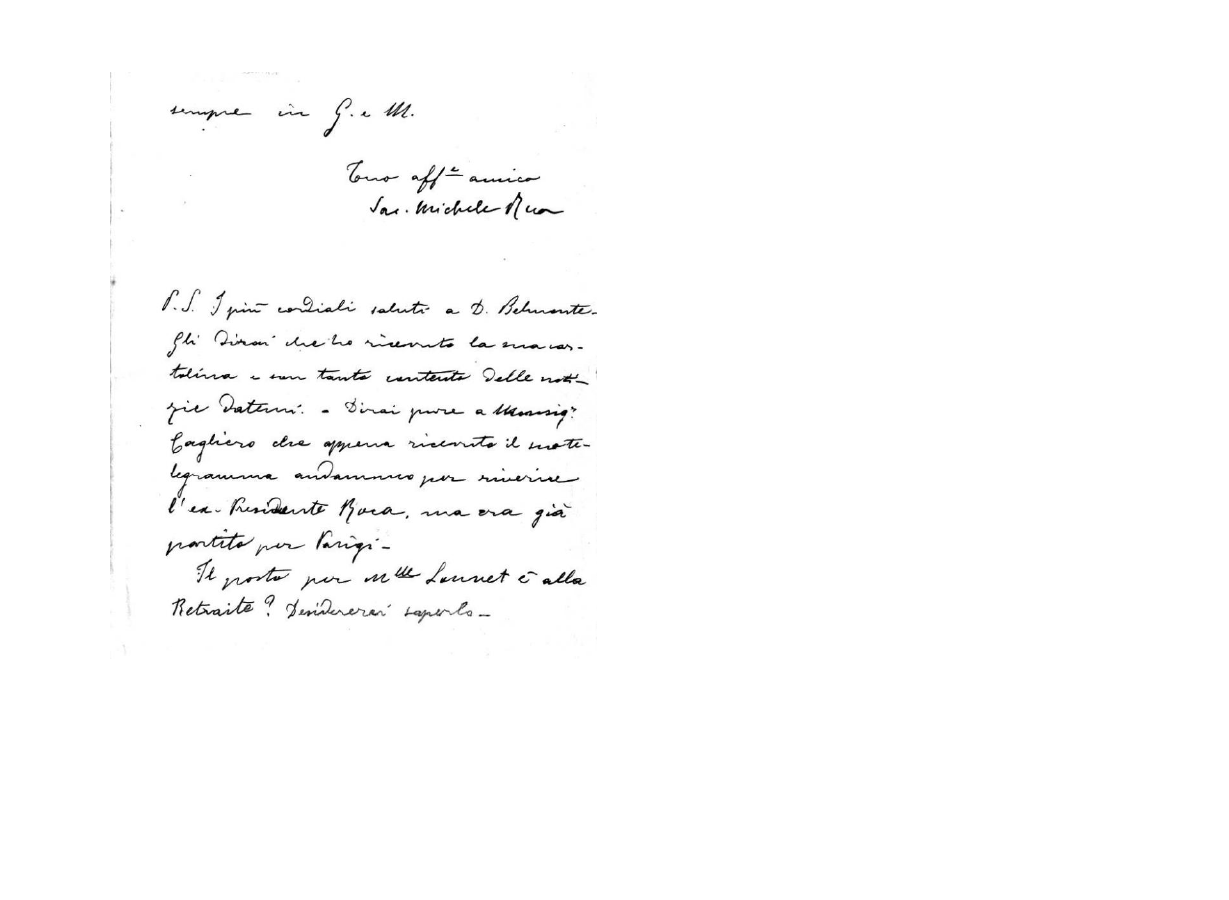 sempre in G. e M.
Tuo aff.e amico
Sac. Michele Rua
P.S. I più cordiali saluti a D. Belmonte.
Gli dirai che ho ricevuto la sua car-
tolina e son tanto contento delle noti-
zie datemi. - Dirai pure a Monsigr
Cagliero che appena ricevuto il suo te-
legramma andammo per riverire
l'ex-Presidente Roca, ma era già
partito per Parigi -
Il posto per Mlle è alla
Retraite? Desidererei saperlo -